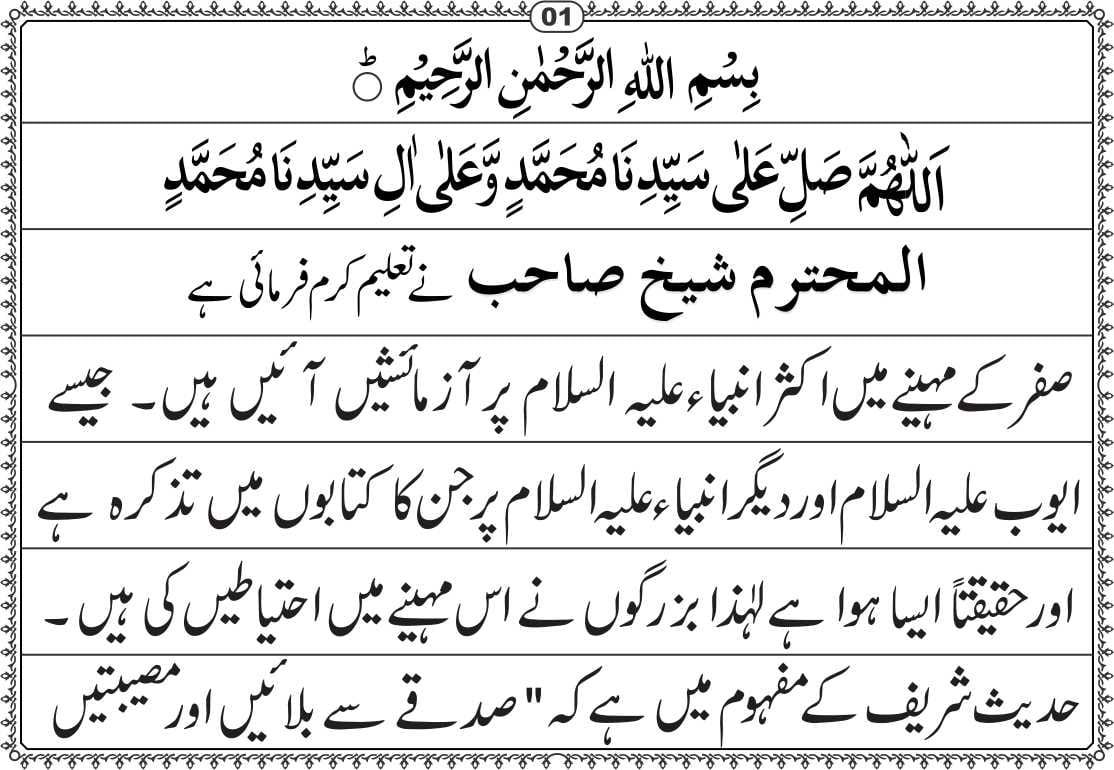 01
بِسْمِ اللّٰهِ الرَّحْمٰنِ الرَّحِیْمِ ○ؕ
اَللّٰهُمَّ صَلِّ عَلٰی سَیِّدِنَا مُحَمَّدٍ وَّعَلٰی اٰلِ سَیِّدِنَا مُحَمَّدٍ
المحترم شیخ صاحب نے تعلیم کرم فرمائی ہے
صفر کے مہینے میں اکثر انبیاء علیہ السلام پر آزمائشیں آئیں ہیں۔ جیسے
ایوب علیہ السلام اور دیگر انبیاء علیہ السلام پر جن کا کتابوں میں تذکرہ ہے
اور حقیقتاً ایسا ہوا ہے لہٰذا بزرگوں نے اس مہینے میں احتیاطیں کی ہیں۔
حدیث شریف کے مفہوم میں ہے کہ "صدقے سے بلائیں اور مصیبتیں